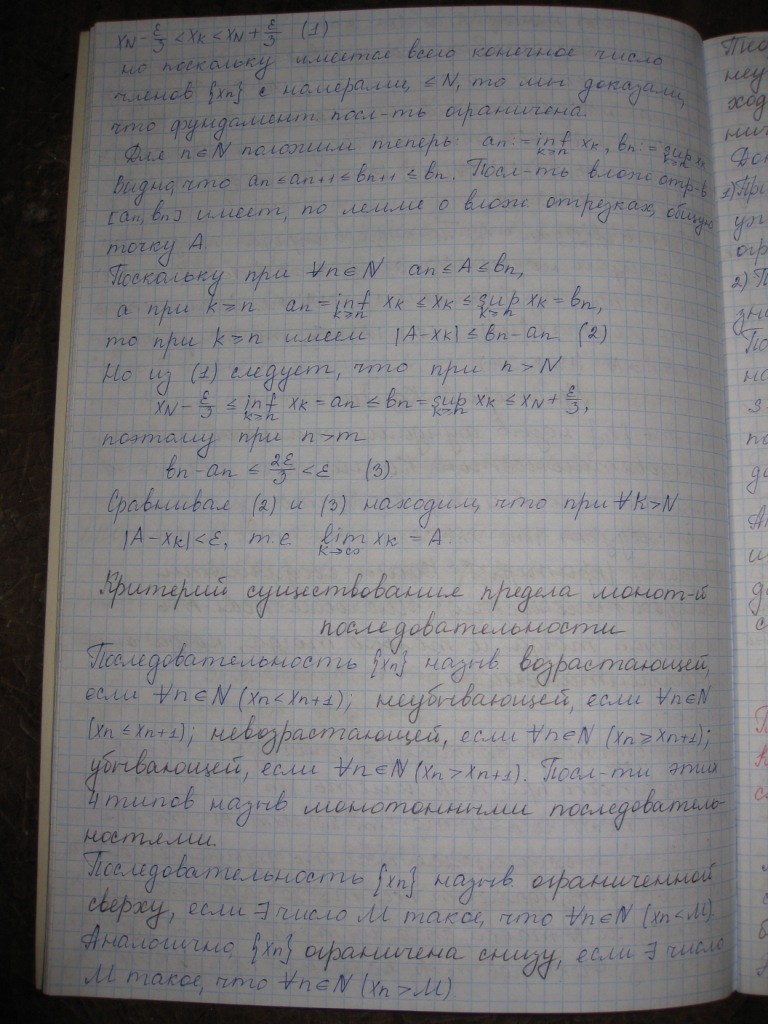 xN - ε/3 < xk < xN + ε/3 (1)
но поскольку имеется всего конечное число
членов {xn} с номерами, ≤ N, то мы доказали,
что фундамент. посл-ть ограничена.
Для n∈N положим теперь an := inf k≥n xk, bn := sup k≥n xk
Видно, что an ≤ an+1 ≤ bn+1 ≤ bn. Посл-ть влож отр-в
[an, bn] имеет, по лемме о влож отрезках, общую
точку А.
Поскольку при ∀n∈N an ≤ A ≤ bn,
а при k≥n an = inf k≥n xk ≤ xk ≤ sup k≥n xk = bn,
то при k≥n имеем |A-xk| ≤ bn-an (2)
Но из (1) следует, что при n > N
xN - ε/3 ≤ inf k≥n xk = an ≤ bn = sup k≥n xk ≤ xN + ε/3,
поэтому при n>m
bn-an ≤ 2ε/3 < ε (3)
Сравнивая (2) и (3) находим, что при ∀k>N
|A-xk|<ε, т.е. lim k→∞ xk = A
Критерий существования предела монот-й
последовательности
Последовательность {xn} назыв возрастающей,
если ∀n∈N (xn<xn+1); неубывающей, если ∀n∈N
(xn≤xn+1); невозрастающей, если ∀n∈N (xn≥xn+1);
убывающей, если ∀n∈N (xn>xn+1). Посл-ти этих
4 типов назыв монотонными последователь-
ностями.
Последовательность {xn} назыв. ограниченной
сверху, если ∃ число M такое, что ∀n∈N (xn<M).
Аналогично, {xn} ограничена снизу, если ∃ число
M такое, что ∀n∈N (xn>M)